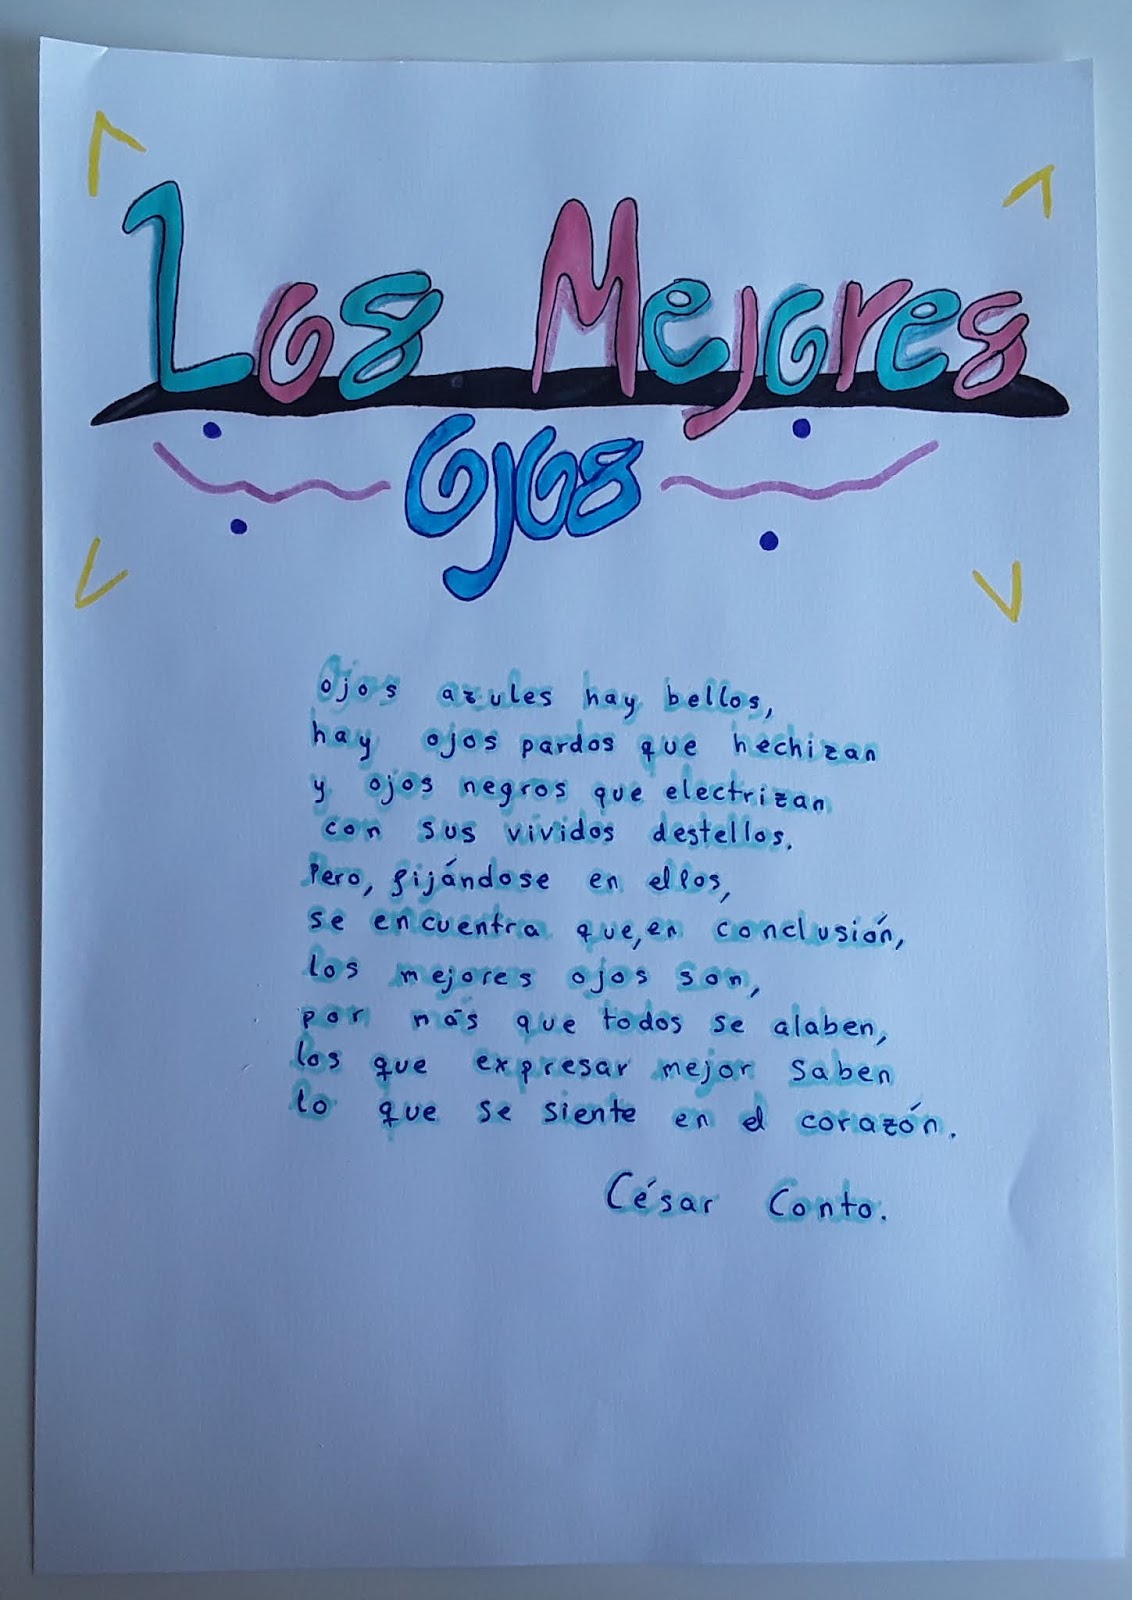 Los Mejores
Ojos
Ojos azules hay bellos,
hay ojos pardos que hechizan
y ojos negros que electrizan
con sus vividos destellos.
Pero, fijándose en ellos,
se encuentra que, en conclusión,
los mejores ojos son,
por más que todos se alaben,
los que expresar mejor saben
lo que se siente en el corazón.
César Conto.